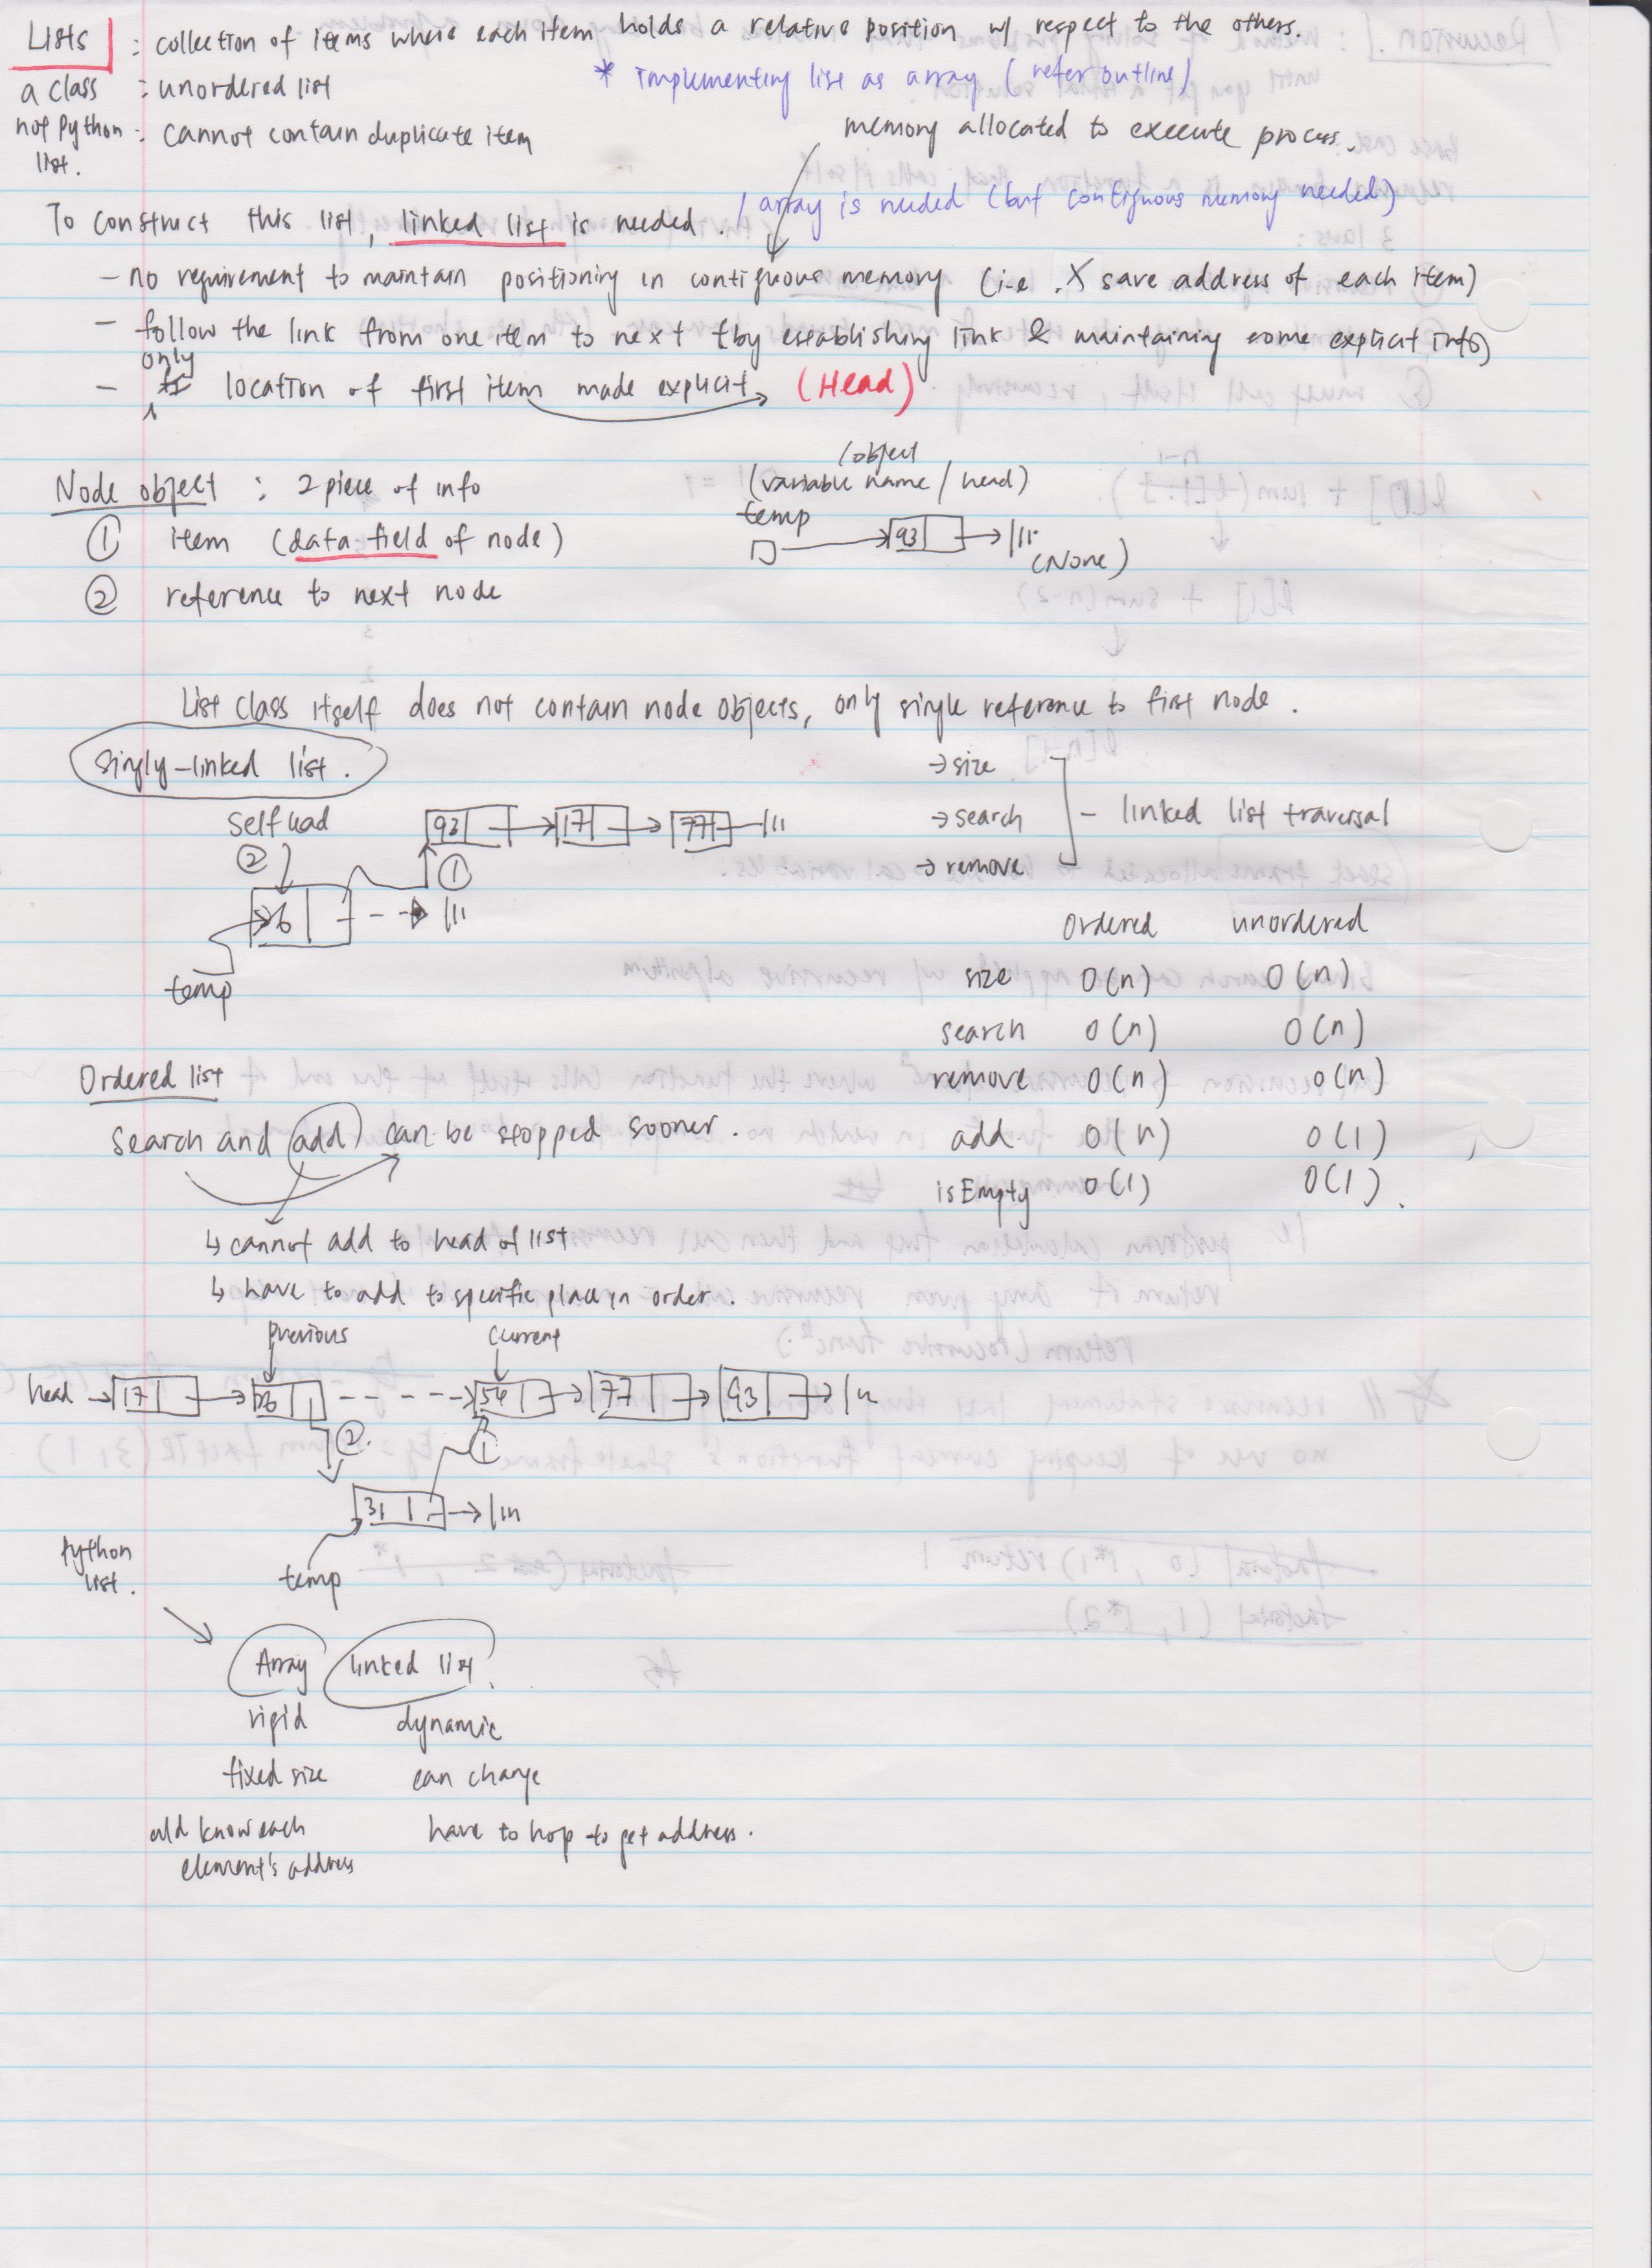 Lists : collection of items where each item holds a relative position w/ respect to the others.
a class : unordered list
* implementing list as array (refer outline)
not Python list. : cannot contain duplicate item
memory allocated to execute process.
To construct this list, linked list is needed. / array is needed (but contiguous memory needed)
- no requirement to maintain positioning in contiguous memory (i.e. X save address of each item)
- follow the link from one item to next (by establishing link & maintaining some explicit info)
- only location of first item made explicit (Head)
Node object : 2 piece of info
① item (data field of node)
② reference to next node
/object
(variable name / head)
temp
93
(None)
List class itself does not contain node objects, only single reference to first node.
Singly-linked list.
self head
93 17 77
② ①
26
temp
→ size
→ search
→ remove
- linked list traversal
Ordered unordered
size O(n) O(n)
search O(n) O(n)
remove O(n) O(n)
add O(n) O(1)
isEmpty O(1) O(1).
Ordered list
Search and add can be stopped sooner.
↳ cannot add to head of list
↳ have to add to specific place in order.
previous current
head → 17 26 54 77 93
② ①
31
temp
Python list.
Array linked list.
rigid dynamic
fixed size can change
know each element's address
have to hop to get address.